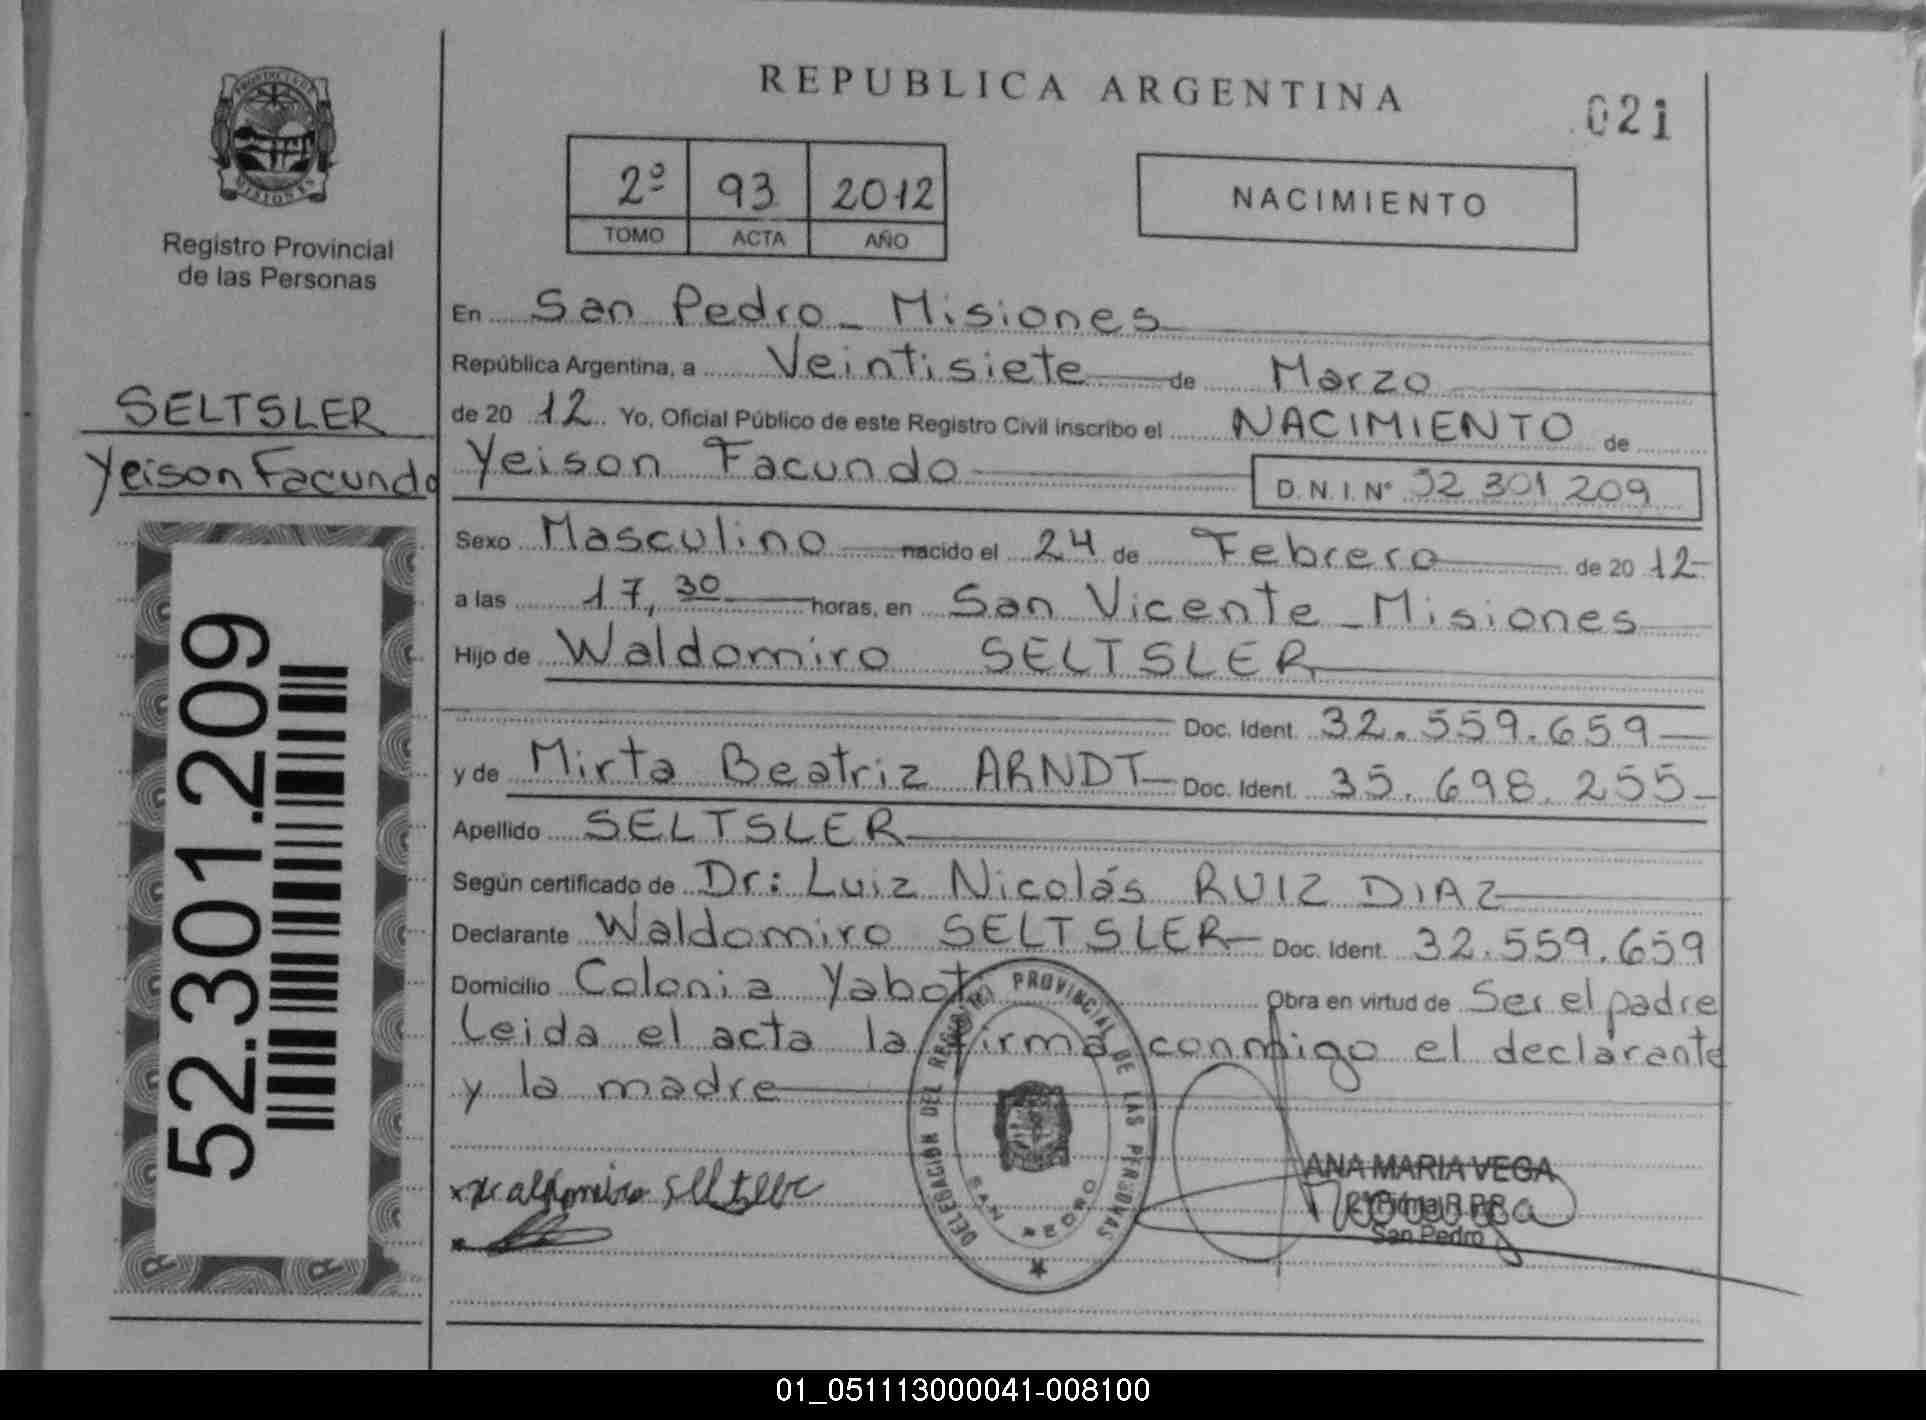 REPUBLICA ARGENTINA
021
PROVINCIA DE
MISIONES
Registro Provincial
de las Personas
2º 93 2012
TOMO ACTA AÑO
NACIMIENTO
SELTSLER
Yeison Facundo
52.301.209
En San Pedro - Misiones
República Argentina, a Veintisiete de Marzo
de 20 12. Yo, Oficial Público de este Registro Civil inscribo el NACIMIENTO de
Yeison Facundo D.N.I.Nº 52 301 209
Sexo Masculino nacido el 24 de Febrero de 20 12
a las 17,30 horas, en San Vicente - Misiones
Hijo de Waldomiro SELTSLER
Doc. Ident. 32.559.659
y de Mirta Beatriz ARNDT Doc. Ident. 35.698.255
Apellido SELTSLER
Según certificado de Dr: Luiz Nicolás RUIZ DIAZ
Declarante Waldomiro SELTSLER Doc. Ident. 32.559.659
Domicilio Colonia Yabotí Obra en virtud de Ser el padre
Leida el acta la firma conmigo el declarante
y la madre
DELEGACIÓN DEL REGISTRO PROVINCIAL DE LAS PERSONAS
SAN PEDRO
ANA MARIA VEGA
San Pedro
01_051113000041-008100